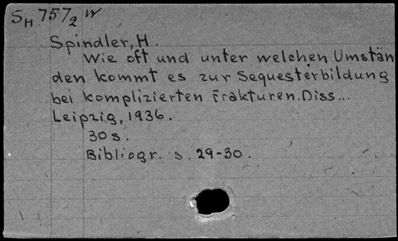 SH 757₂ W
Spindler, H.
Wie oft und unter welchen Umstän
den kommt es zur Sequesterbildung
bei komplizierten Frakturen. Diss...
Leipzig, 1936.
30 s.
Bibliogr. s. 29-30.